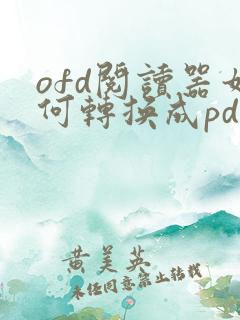 ofd閱讀器如
何轉換成pd
黃美英
未经同意禁止转载